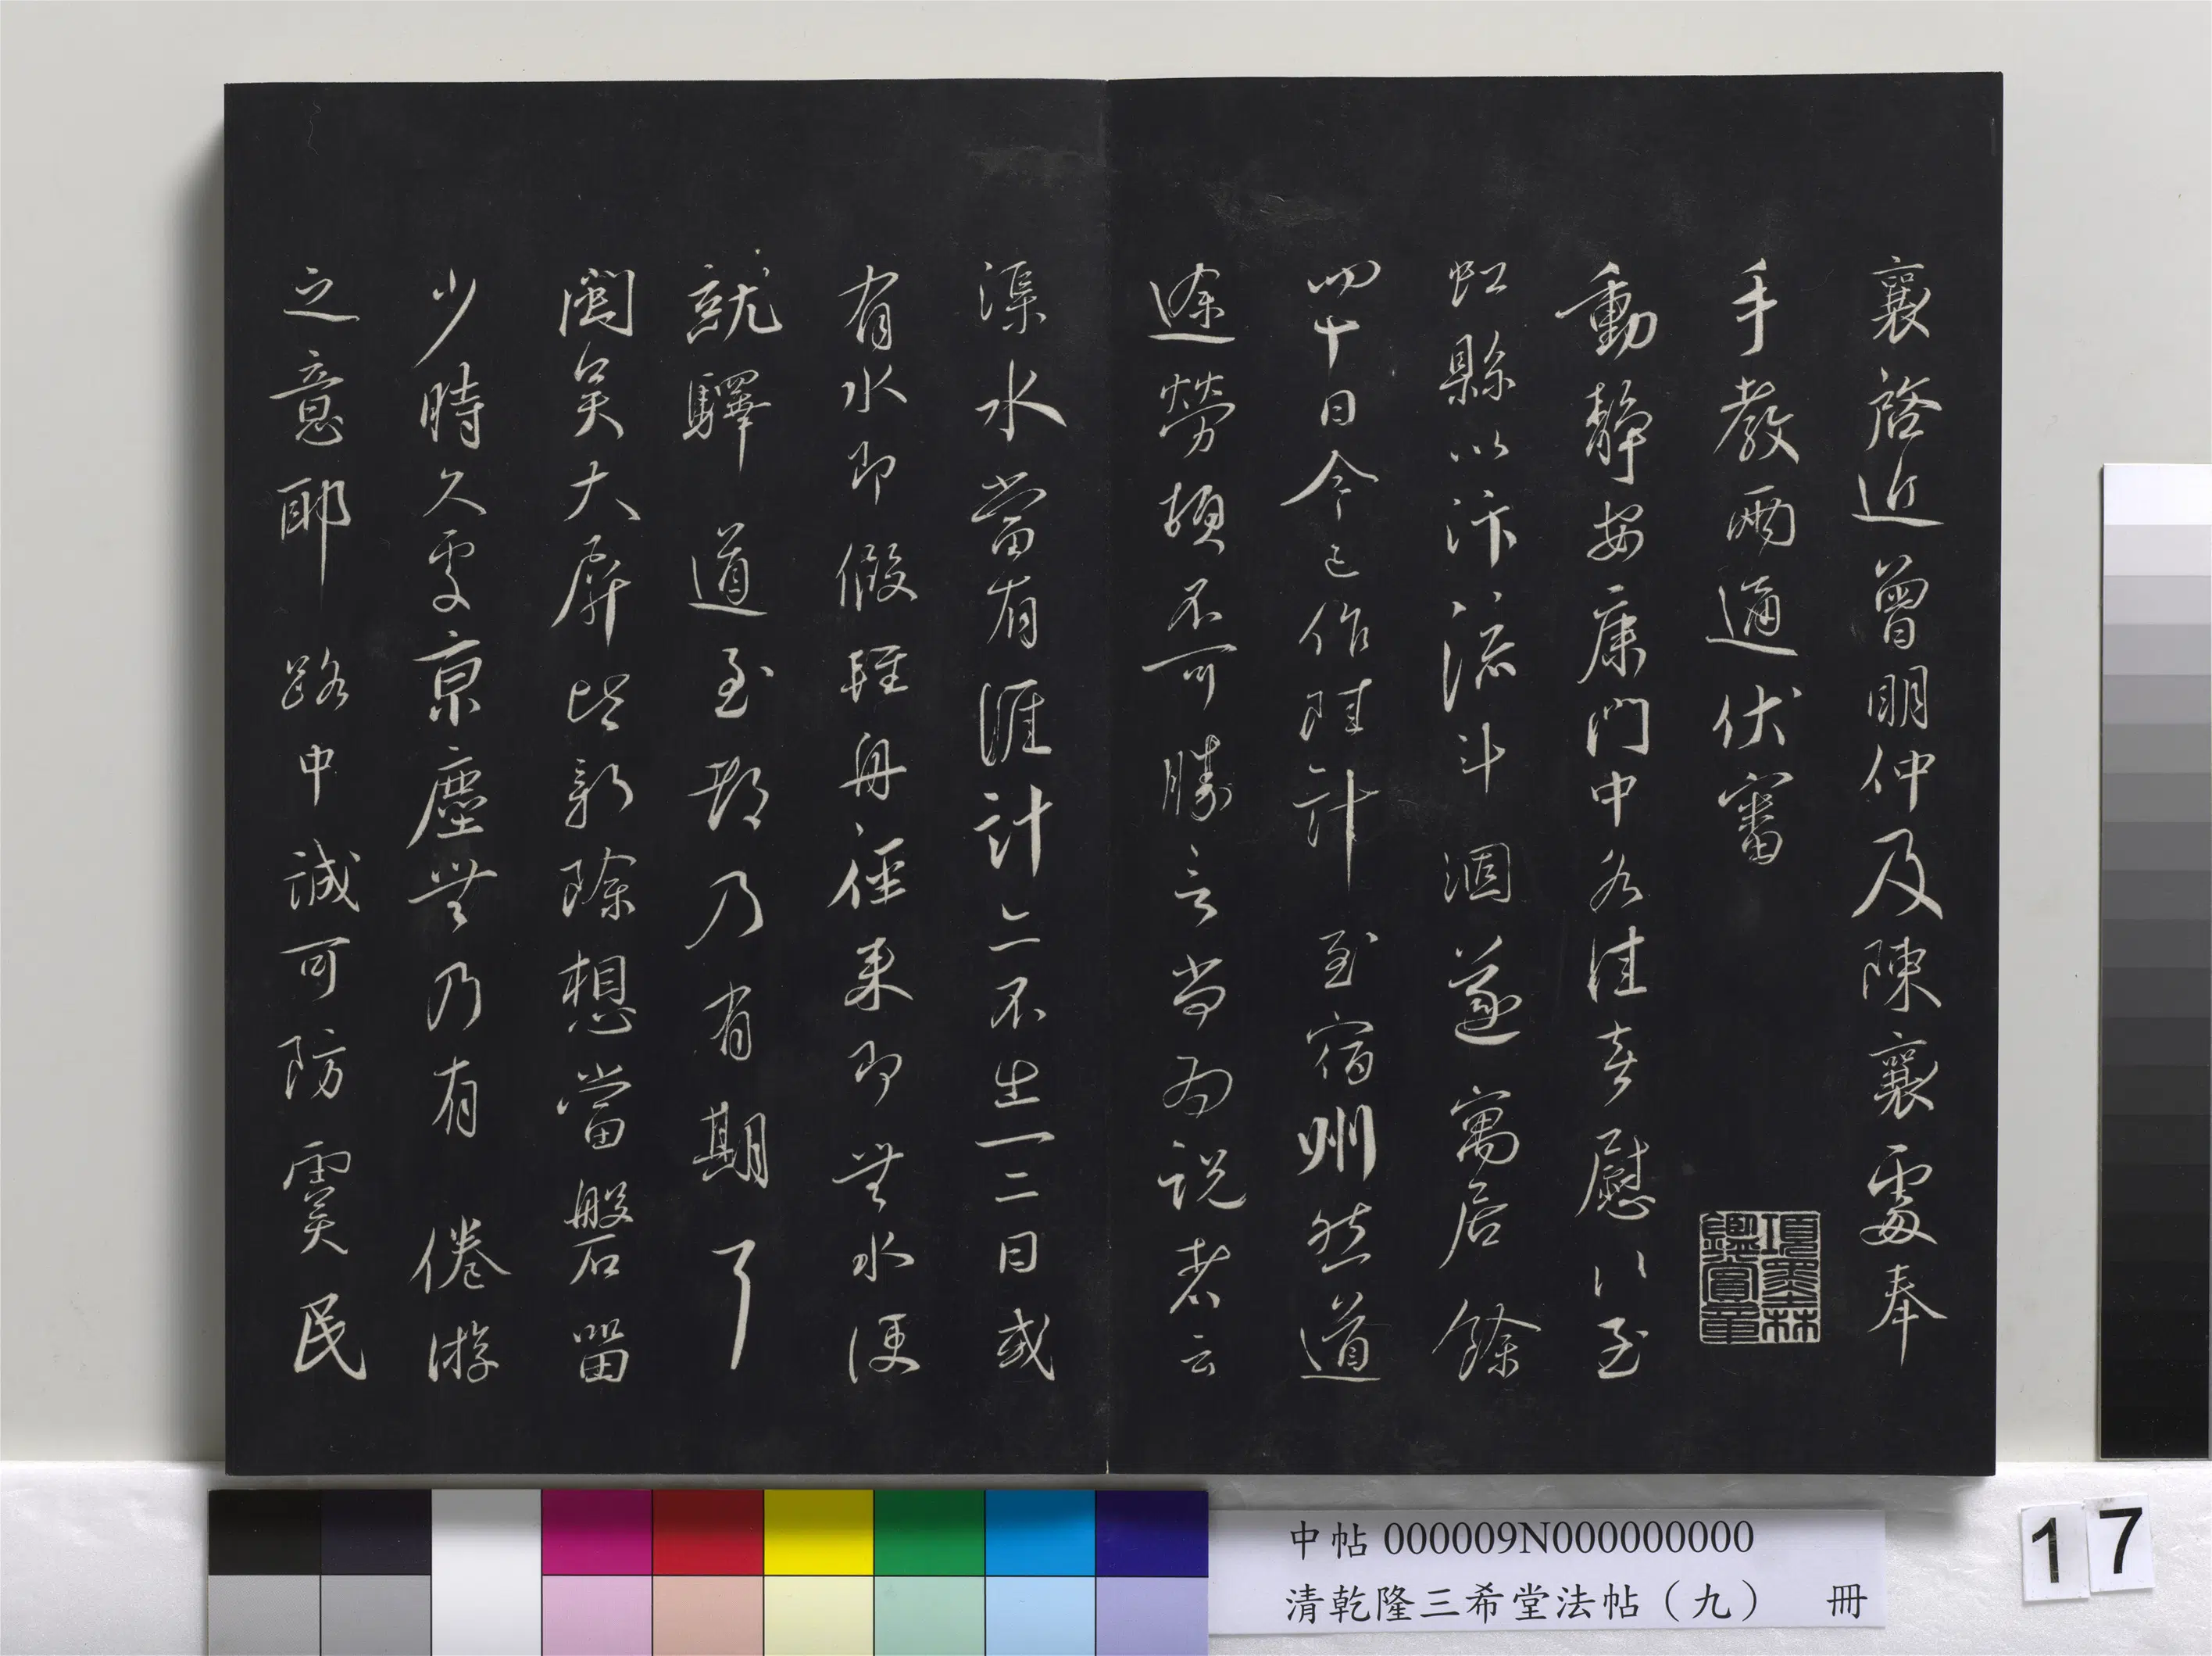 襄啓近曾明仲及陳襄處奉
手教兩通伏審
動靜安康門中各佳喜慰以至
虹縣以汴流斗涸遂寓居餘
四十日今已作陸計至宿州然道
途勞頓不可勝言尚為說者云
渠水當有涯計亦不出一二日或
有水即假輕舟徑來即無水便
就驛道至都乃有期了
聞吳大屏皆新除想當般石留
少時久處京塵無乃有倦游
之意耶路中誠可防虞民
項墨林鑑賞章
中帖 000009N000000000
清乾隆三希堂法帖（九） 冊
17